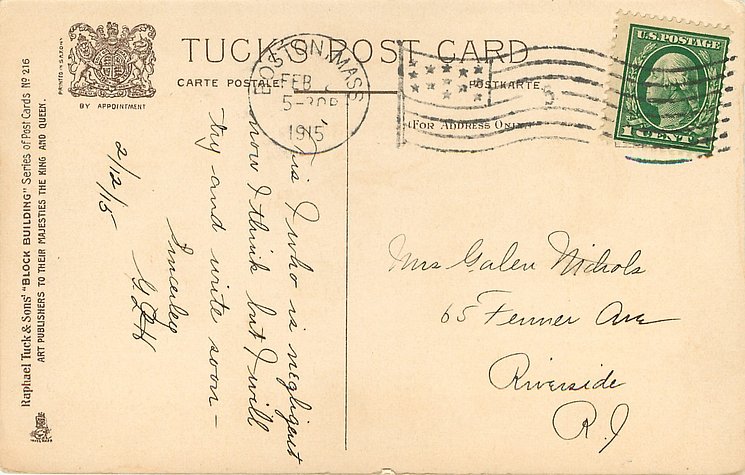 TUCK'S POST CARD
CARTE POSTALE.
POSTKARTE.
(FOR ADDRESS ONLY.)
BY APPOINTMENT
BOSTON, MASS
FEB
1915
U.S. POSTAGE
1 CENT 1
Raphael Tuck & Sons' "BLOCK BUILDING" Series of Post Cards No 216
ART PUBLISHERS TO THEIR MAJESTIES THE KING AND QUEEN.
2/12/15
is I who is negligent
now I think but I will
try and write soon –
Sincerely
GLH
Mrs Galen Nichols
65 Fenner Ave
Riverside
R.I